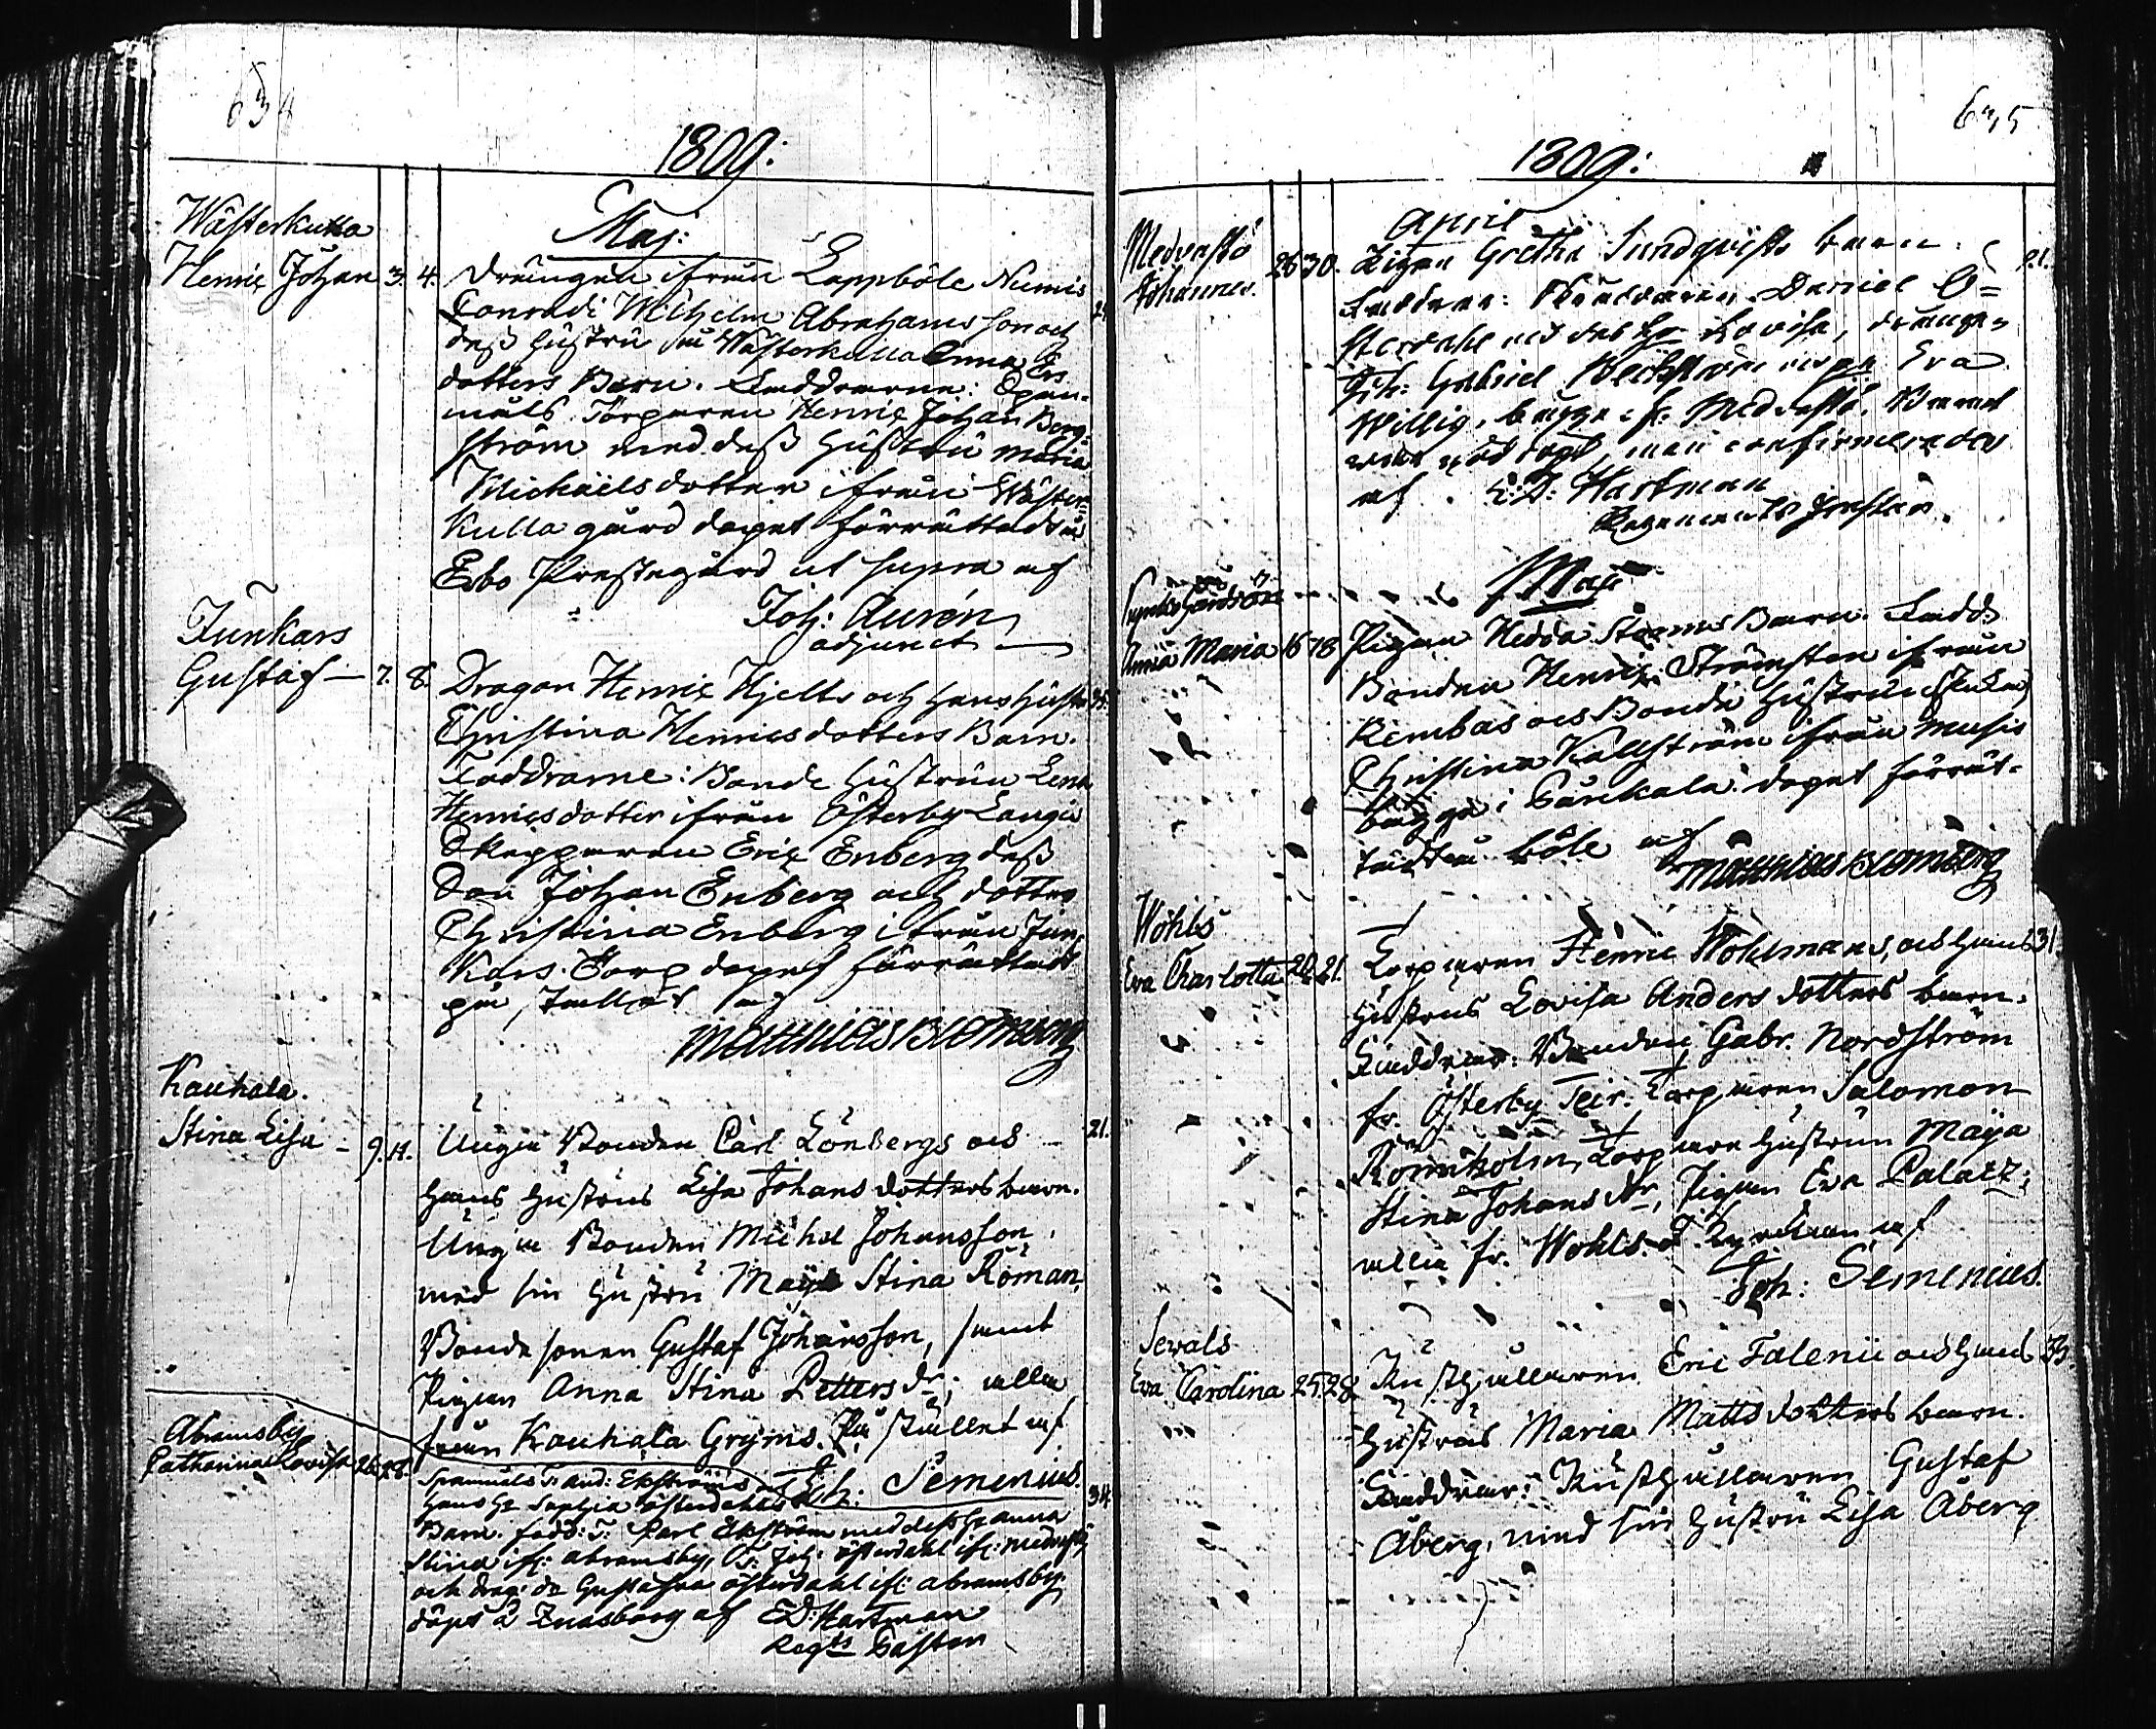 634
1809:
Maj:
Wästerkulla
Henric Johan 3. 4. Drängen ifrån Lappböle Numis 24
Conradi Wilhelm Abrahams son och
dess hustru på Wästerkulla Anna Ers
dotters Barn. Faddrarne: Span-
måls Torparen Henric Johan Berg-
ström med dess hustru Maria
Michaëlsdotter ifrån Wäster-
kulla gård dopet förrättades i
Esbo Prestegård ut supra af
Joh: Aurén
adjunct
Junkars
Gustaf 7. 8. Dragon Henric Hjelts och hans hustru
Christina Henricsdotters Barn.
Faddrarne: Bonde hustrun Lena
Henricsdotter ifrån Österby Langis
Skepparen Eric Enberg dess
Son Johan Enberg och dotter
Christina Enberg ifrån Jun-
kars Torp dopet förrättadt
på stället af
Matthias Blomberg
Kauhala.
Stina Lisa 9. 11. Unga Bonden Carl Lönbergs och 21.
hans hustrus Lisa Johansdotters barn.
Unga Bonden Michel Johansson
med sin hustru Maja Stina Roman,
Bondesonen Gustaf Johansson, samt
Pigan Anna Stina Petters dr; alla
från Kauhala Gryms. På stället af
Joh: Semenius.
Abramsby
Catharina Lovisa 26. 28. Spanmåls T: And: Ekströms och 34
hans H: Sophia Österdahls
Barn. fadd: T: Carl Ekström med dess H: Anna
Stina if: Abramsby, Joh: Österdahl if: Medvastö
och drag: do Gustafva Österdahl if: Abramsby
döpt å Zuasborg af E D: Hartman
Regts Pastor
635
1809:
April
Medvastö
Johannes. 26 30. Pigan Gretha Sundqvists barn. 21.
Faddrar: Daniel Ö=
sterdahl med dess hu Lovisa, drängen
Joh: Gabriel och pn Eva
Willig, bägge fr. Medvastö. Barnet
war nöddöpt, men confirmerades
af E: D: Hartman
Regements Pastor.
Maji
Anna Maria 16 18 Pigan Hedda Storms Barn. Fadd:
Bonden Henric Strömsten ifrån
Rembas och Bonde hustrun
Christina Kallström ifrån Musis
bägge i Pänkala. dopet förrät-
böle af
Matthias Blomberg
Wohls
Eva Charlotta 20. 21. Torparen Henric Wohlmans, och hans 31.
hustrus Lovisa Andersdotters barn.
Faddrar: Bonden Gabr. Nordström
fr. Österby Teir. Torparen Salomon
Romsholm, Torpare hustrun Maja
Stina Johansdtr, Pigan Eva Palatz;
alla fr. Wohls. I kyrckan af
Joh: Semenius.
Sewals
Eva Carolina 25. 28 Rusthållaren Eric Falenii och hans 33.
hustrus Maria Mattsdotters barn.
Faddrar: Rusthållaren Gustaf
Åberg, med sin hustru Lisa Åberg